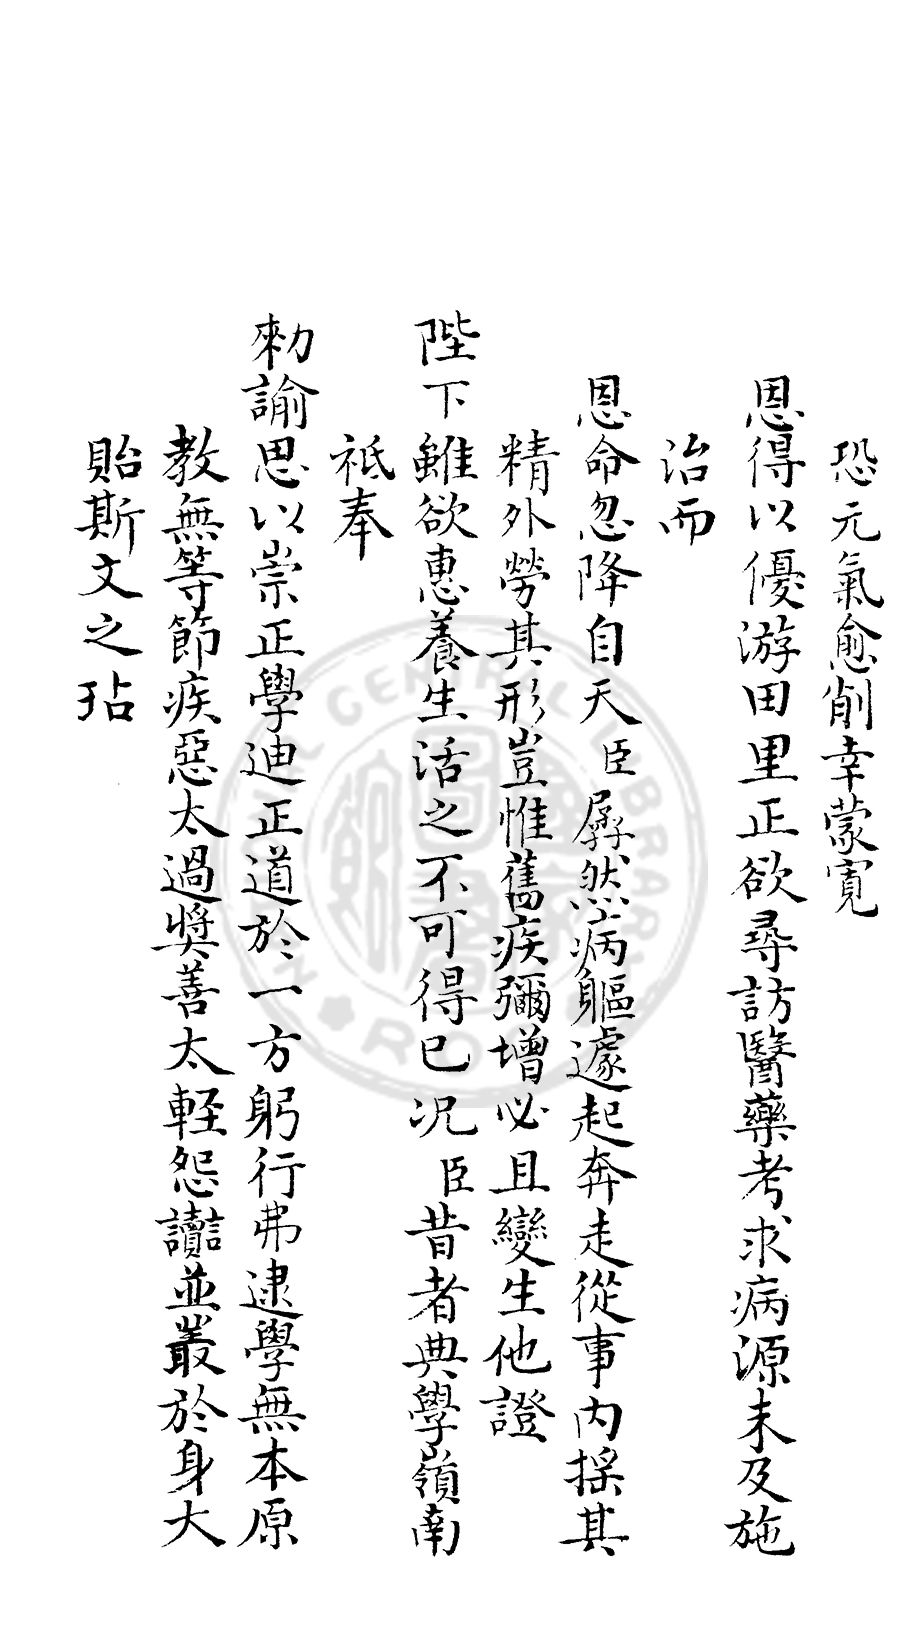 恐元氣愈削幸蒙寬
恩得以優游田里正欲尋訪醫藥考求病源未及施
治而
恩命忽降自天臣孱然病軀遽起奔走從事內搖其
精外勞其形豈惟舊疾彌增必且變生他證
陛下雖欲惠養生活之不可得已况臣昔者典學嶺南
祗奉
勑諭思以崇正學迪正道於一方躬行弗逮學無本原
教無等節疾惡太過奬善太輕怨讟並叢於身大
貽斯文之玷